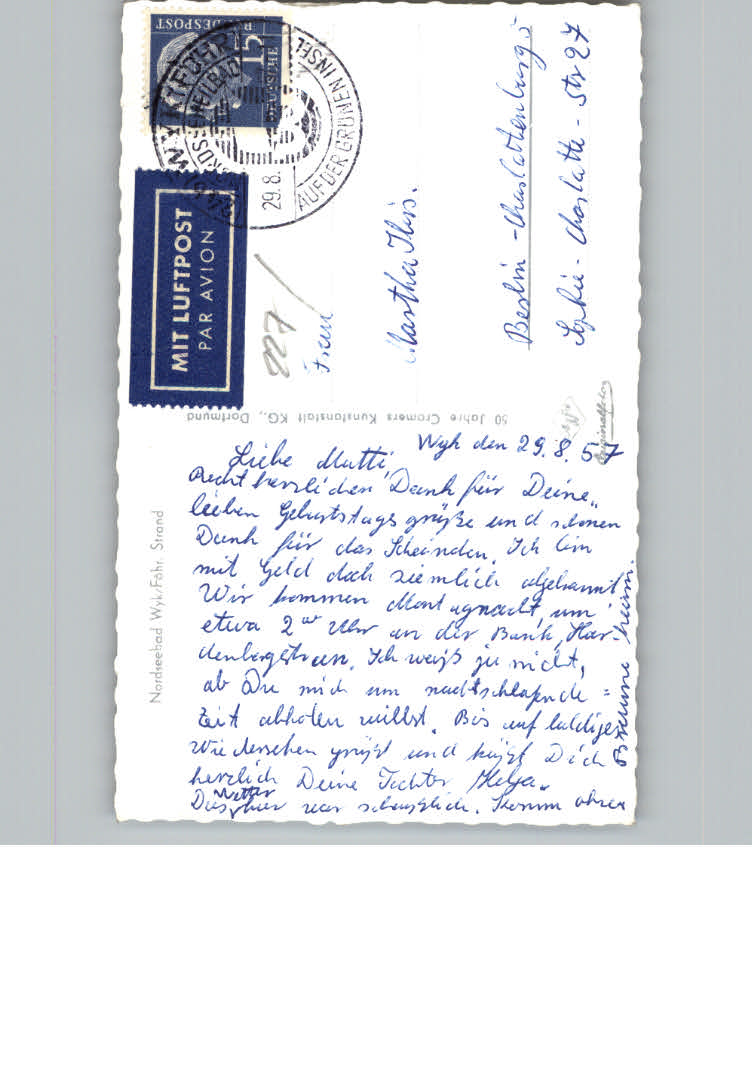 Wyk den 29.8.57
Liebe Mutti,
Recht herzlichen Dank für Deine
lieben Geburtstagsgrüße und schönen
Dank für das Scheinchen. Ich bin
mit Geld doch ziemlich abgebrannt.
Wir kommen Montagnacht um
etwa 2 Uhr an der Bank, Har-
denbergstr. an. Ich weiß ja nicht,
ob Du mich um nachtschlafende
Zeit abholen willst. Bis auf baldiges
Wiedersehen grüßt und küßt Dich
herzlich Deine Tochter Helga.
Das Wetter hier war scheusslich. Sturm ohne
Nordseebad Wyk/Föhr, Strand
50 Jahre Cromers Kunstanstalt KG., Dortmund
Originalfoto
MIT LUFTPOST
PAR AVION
DEUTSCHE
BUNDESPOST
15
WYK
NORDSEEHEILBAD
AUF DER GRÜNEN INSEL
29.8.
227
Frau
Martha This.
Berlin-Charlottenburg 5
Sophie-Charlotte-Str 27